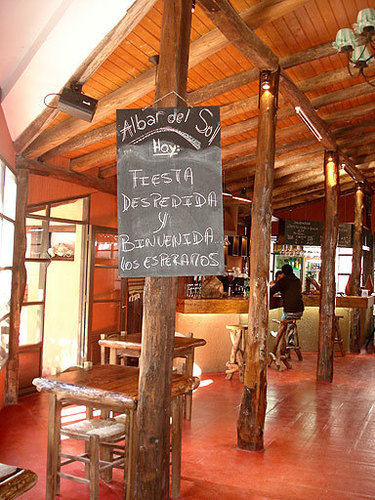 Albar del Sol
Hoy:
FIESTA
DESPEDIDA
Y
BINVENIDA..
LOS ESPERAMOS